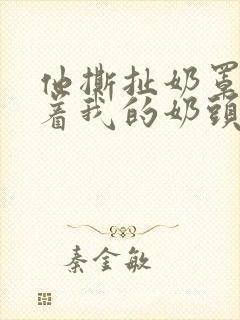 他撕扯奶罩
着我的奶頭
秦金敏